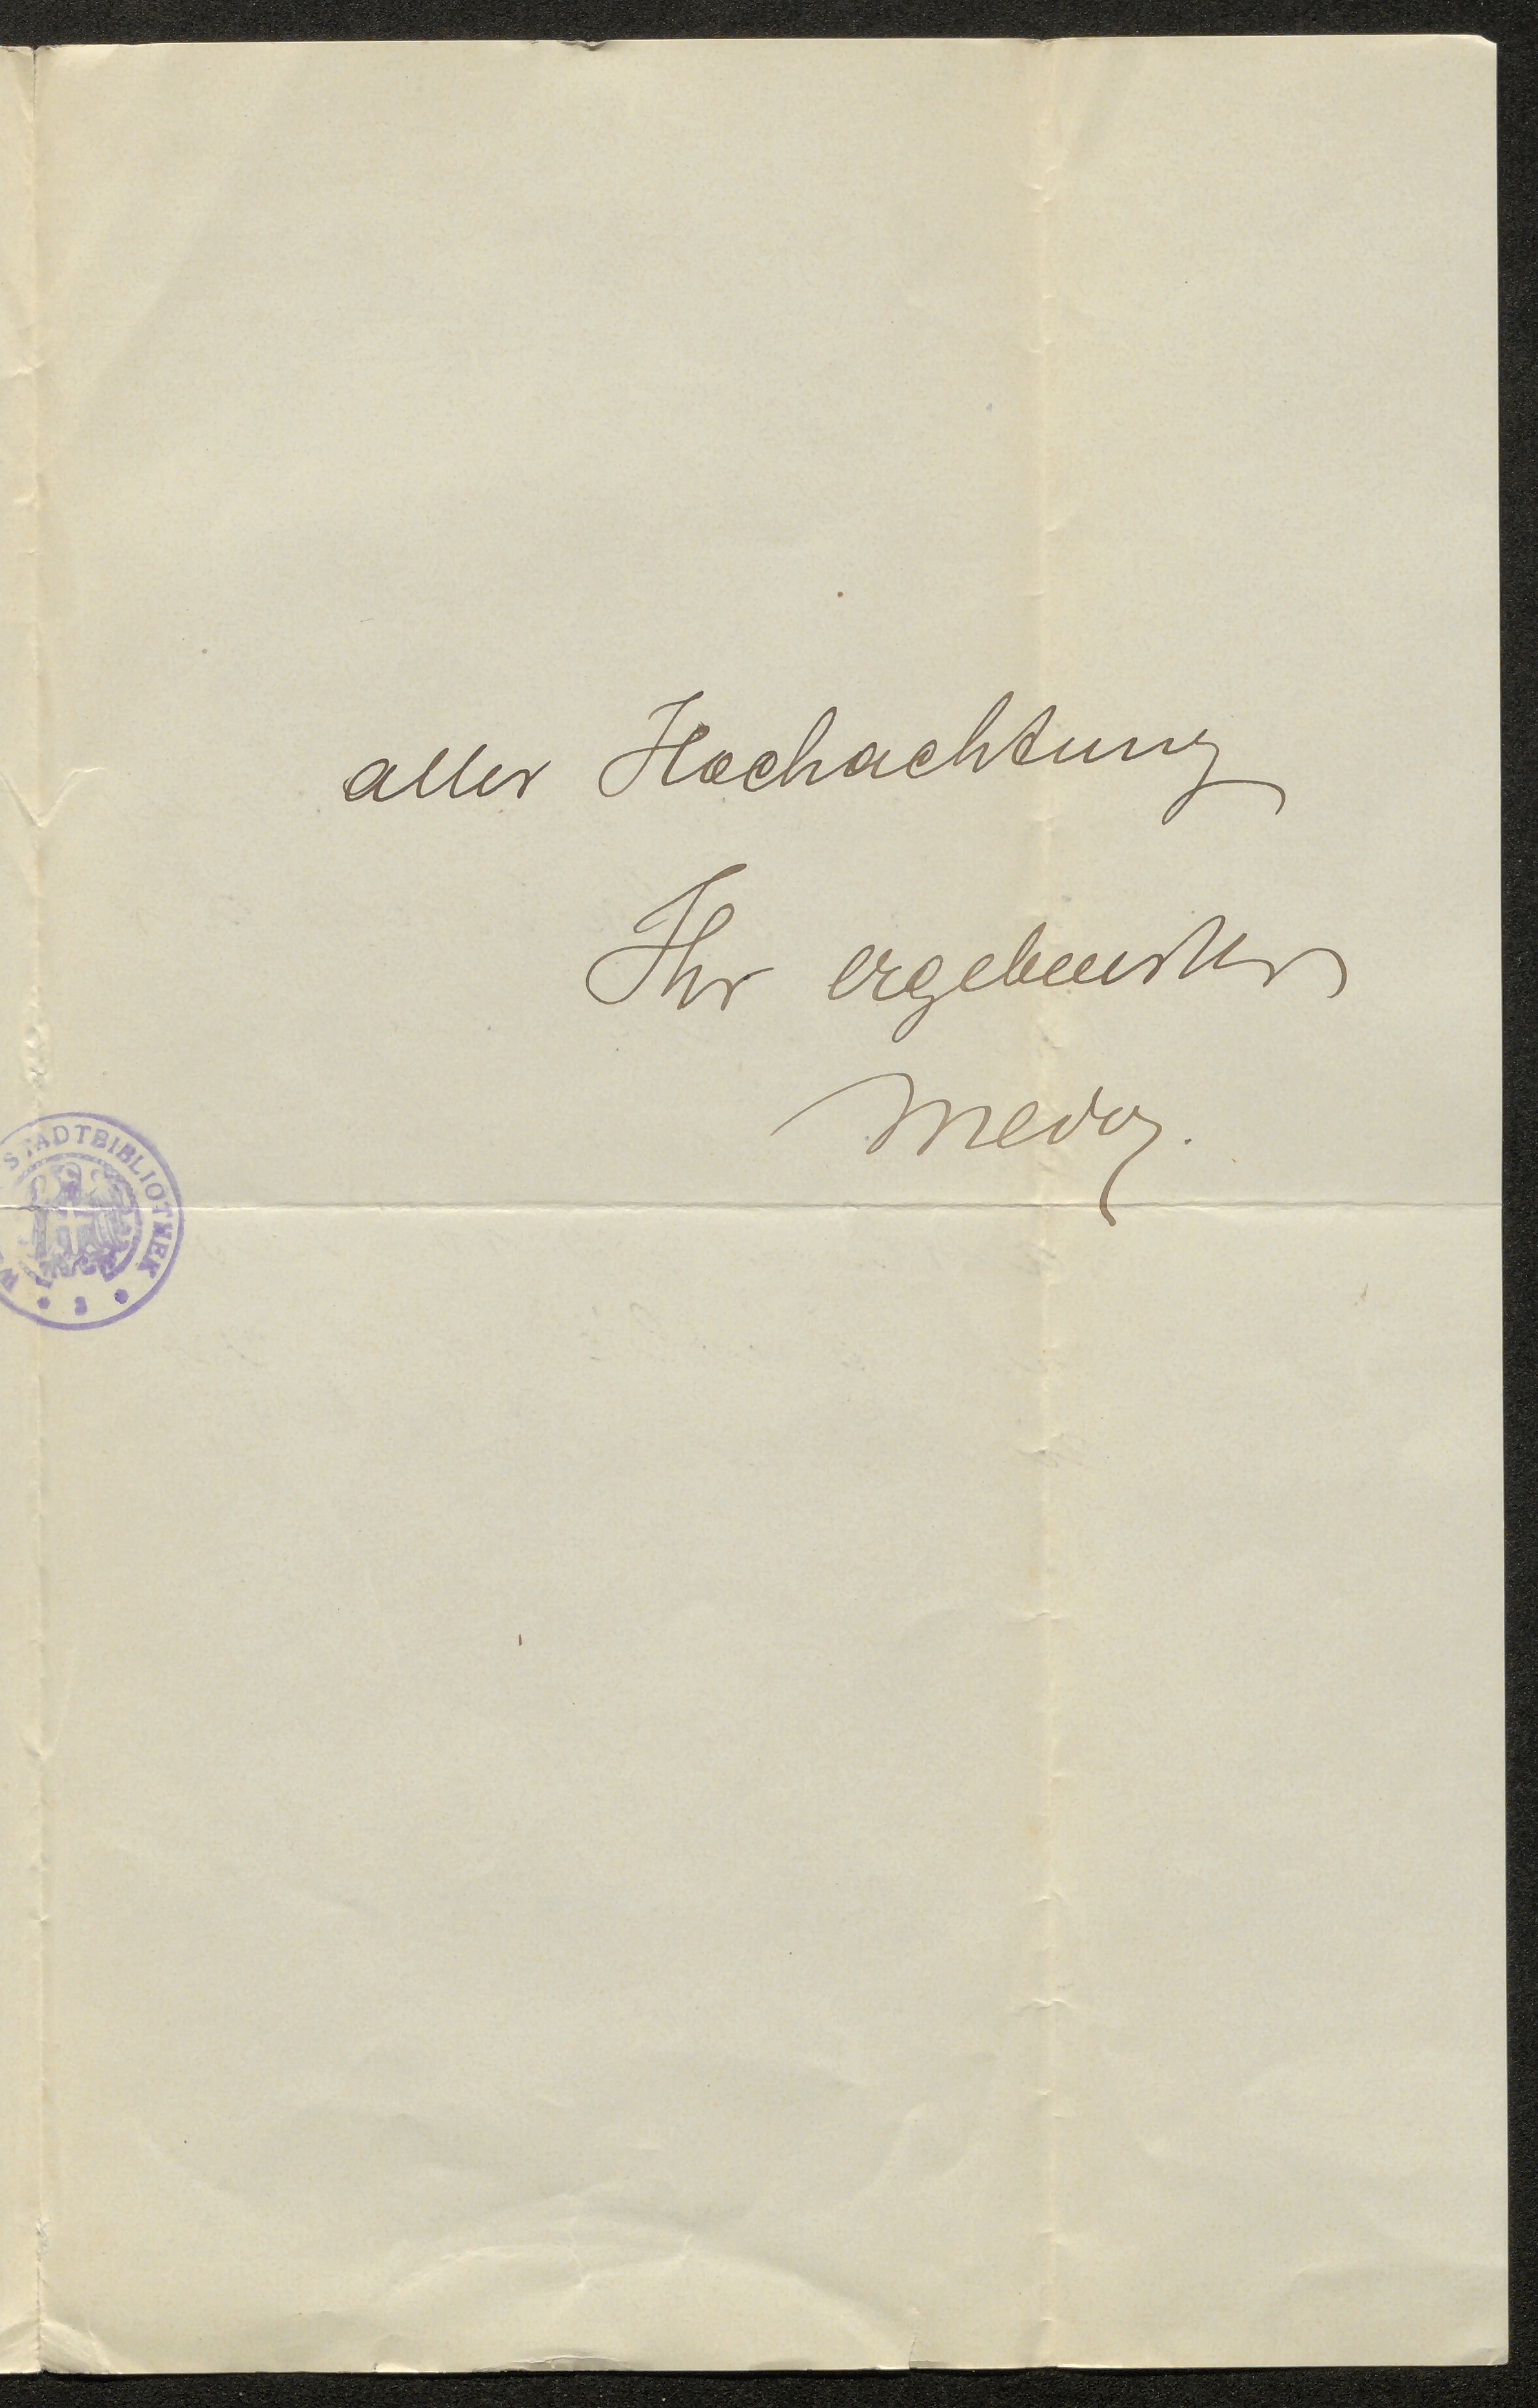 aller Hochachtung
Ihr ergebenster
STADTBIBLIOTHEK